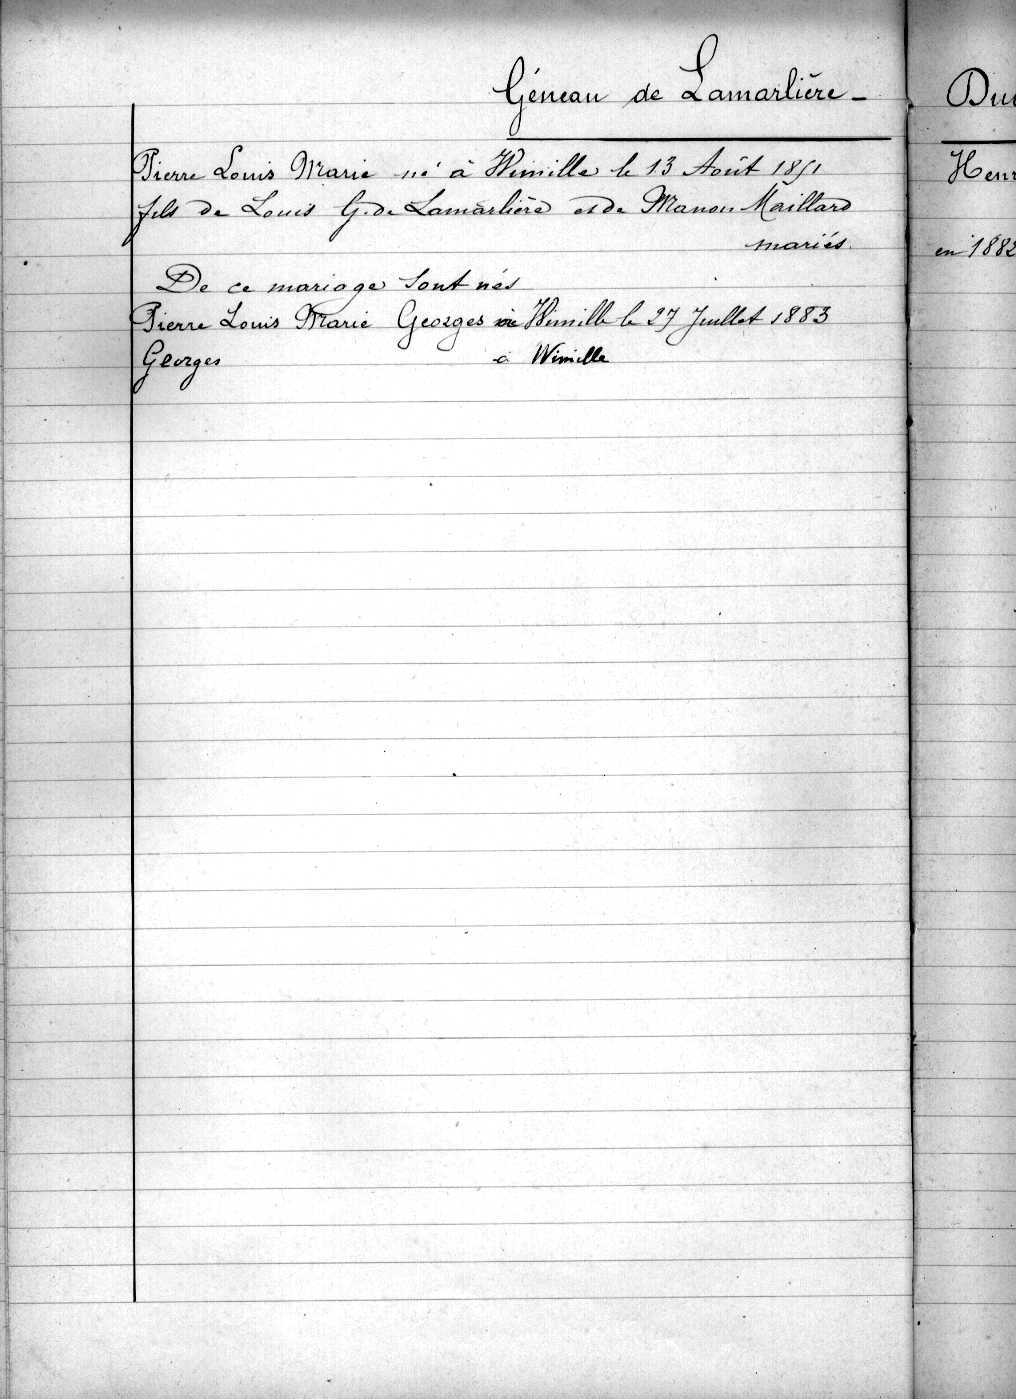 Géneau de Lamarlière -
Pierre Louis Marie né à Wimille le 13 Août 1851
fils de Louis G. de Lamarlière et de Manon Maillard
mariés
De ce mariage sont nés
Pierre Louis Marie Georges à Wimille le 27 Juillet 1883
Georges à Wimille
Du
Henr
en 1882